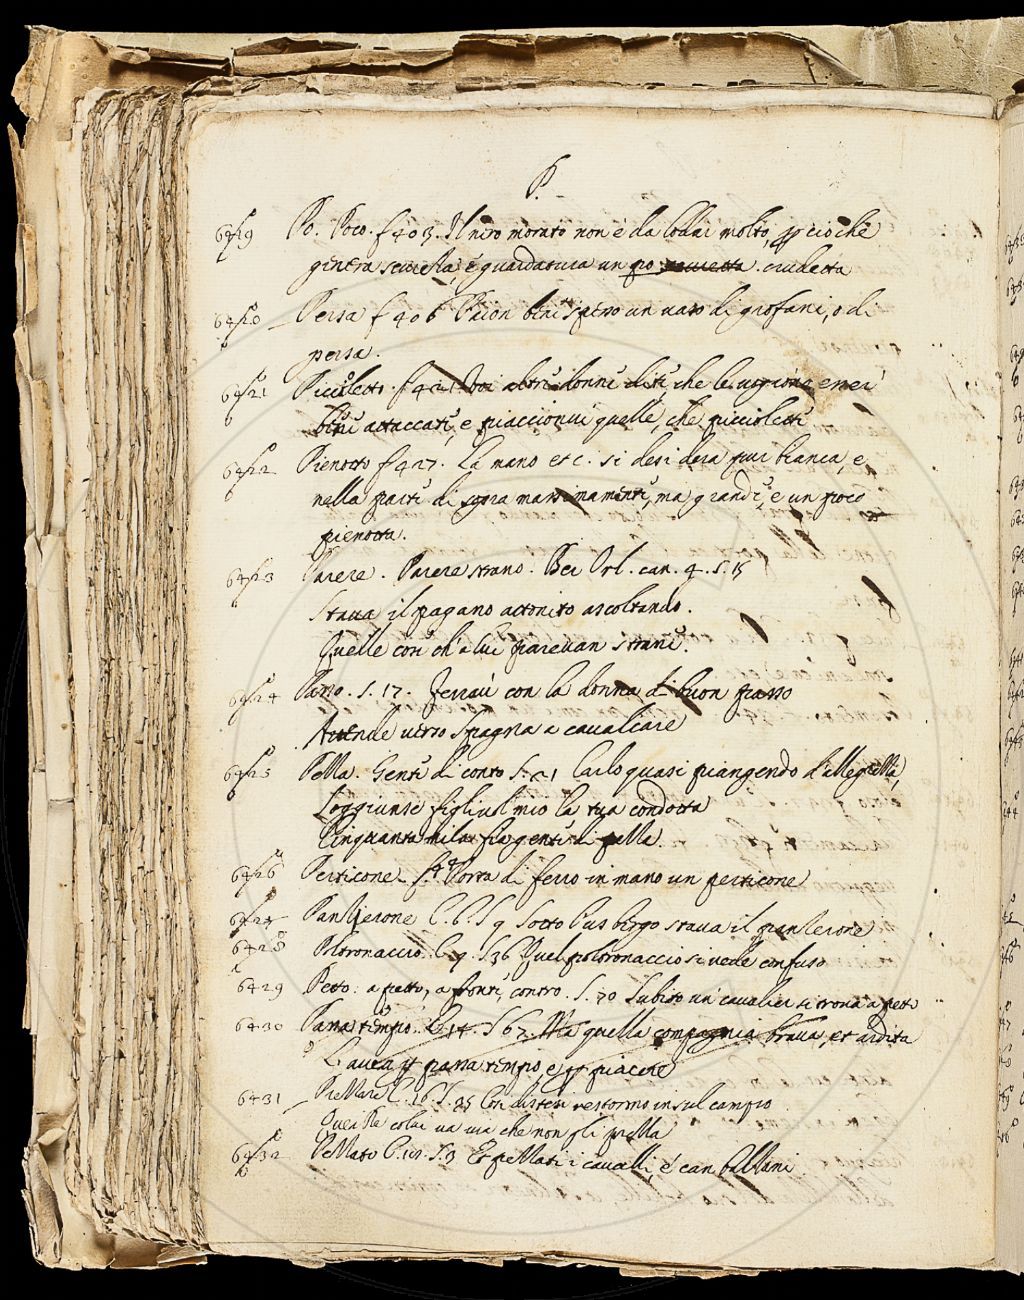 P.
6419 Po. Poco. f 403. Il nero morato non è da lodar molto, ꝑcioche
genera è guardatura un po crudetta
6420 Persa f 406 un vaso di grofani, o di
persa.
6421 Piccoletto. f 421. altre donne che le enei
attaccati, e piaccionui quelle, che picciolette
6422 Pienotto f 427. La mano etc. si desidera pur bianca, e
nella parte di sopra massimamente, ma grande, e un poco
pienotta.
6423 Parere. Parere strano. Ber Orl. can. 4. S. 15
Staua il pagano attonito ascoltando.
Quelle cose ch'a lui pareuan strane.
6424 Passo. S. 17. Ferraù con la donna di buon passo
Attende verso Spagna a caualcare
6425 Pella. Gente di conto S. 21 Carlo quasi piangendo d'allegrezza,
Soggiunse figliuol mio la tua condotta
Cinquanta mila fia gente di pella.
6426 Perticone. Porta di ferro in mano un perticone
6427 Panzierone C. 6. S 9 Sotto l'usbergo staua il panzerone
6428 Poltronaccio. C. 9. S 36 Quel poltronaccio si uede confuso
6429 Petto: a petto, a fronte, contro. S. 70 Subito un caualier si troua a petto
6430 Passa tempo. C. 14. S 67. Ma quella compagnia braua, et ardita
L'auea ꝑ passa tempo, e ꝑ piacere
6431 C. 16. S. 35 Così distese restorno in sul campo
colui ua uia che non gli
6432 C. S. 3 Et i caualli, è can